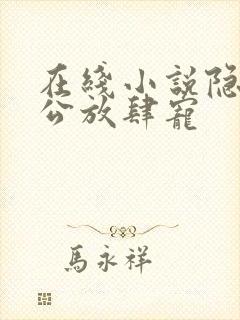 在綫小説隐
公放肆寵
馬永祥